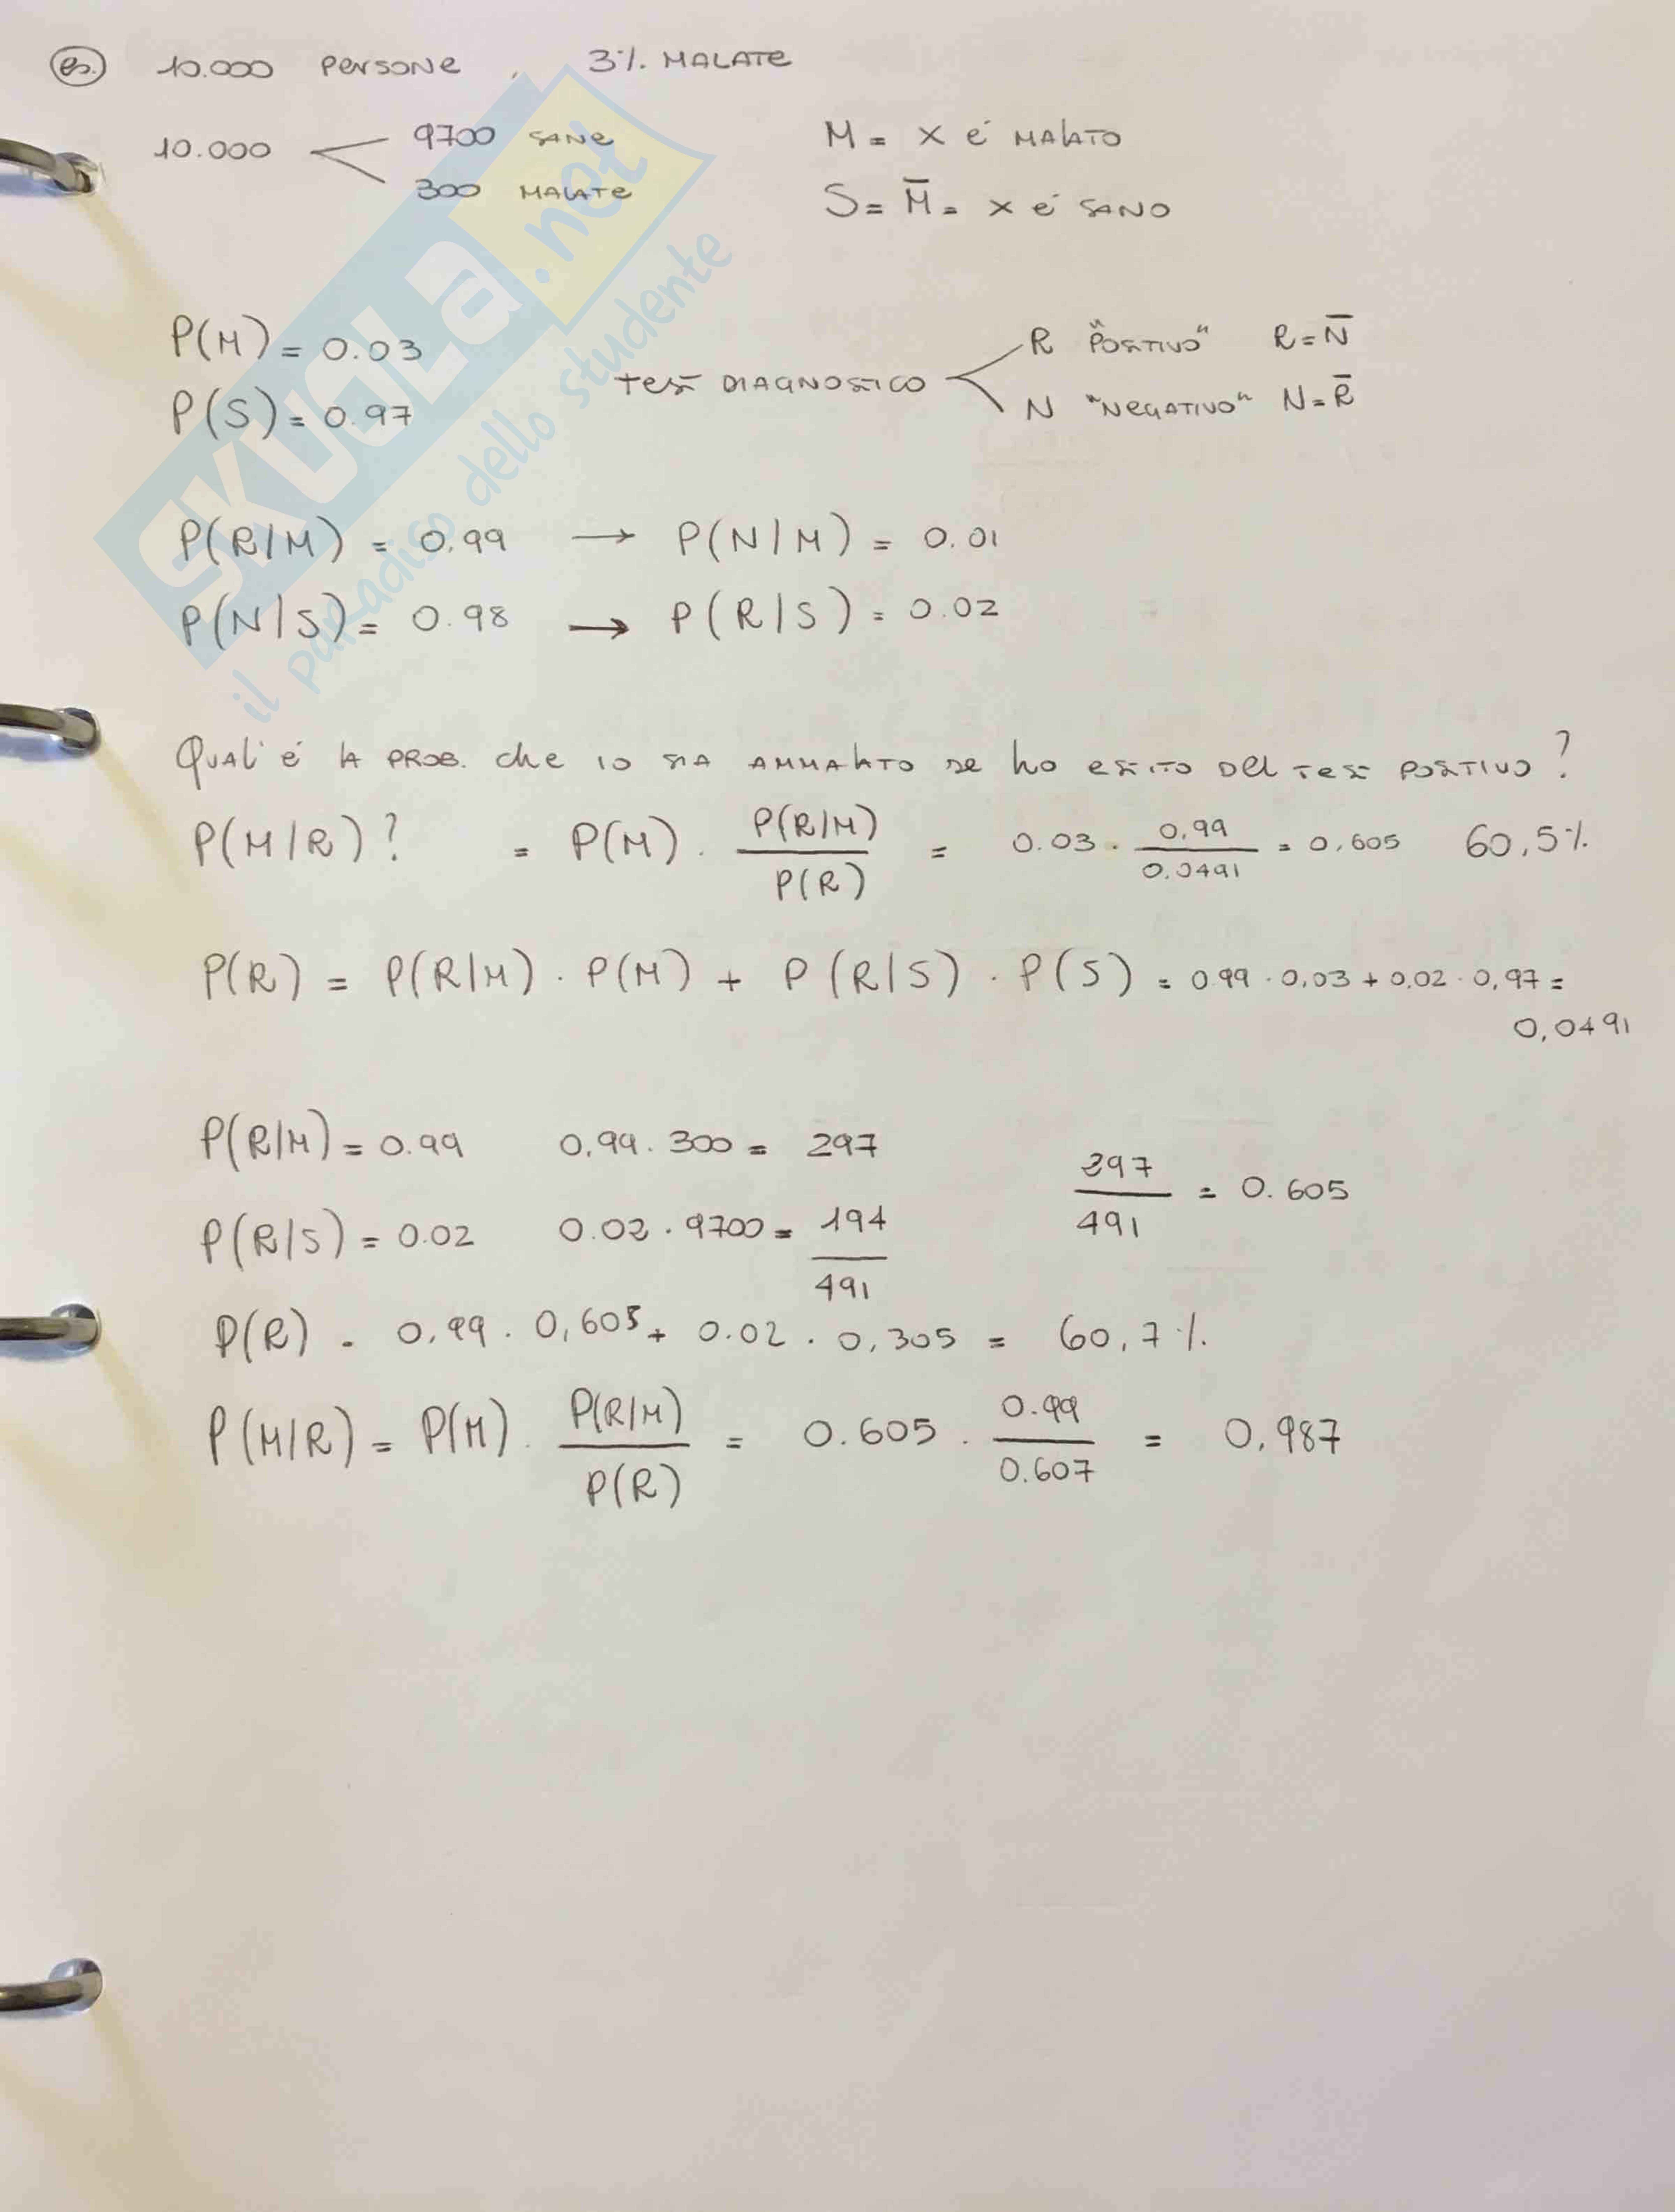 es. 10.000 PERSONE , 3% MALATE
10.000 9700 SANE
300 MALATE
M = X É MALATO
S = M̅ = X É SANO
P(M) = 0.03
P(S) = 0.97
TEST DIAGNOSTICO
R "POSITIVO" R = N̅
N "NEGATIVO" N = R̅
P(R/M) = 0.99 → P(N/M) = 0.01
P(N/S) = 0.98 → P(R/S) = 0.02
QUAL É LA PROB. che IO SIA AMMALATO SE ho ESITO DEL TEST POSITIVO?
P(M/R)? = P(M) · P(R/M) / P(R) = 0.03 · 0,99 / 0.0491 = 0,605 60,5%
P(R) = P(R/M) · P(M) + P(R/S) · P(S) = 0.99 · 0,03 + 0.02 · 0,97 =
0,0491
P(R/M) = 0.99 0,99 · 300 = 297
P(R/S) = 0.02 0.02 · 9700 = 194
491
297 / 491 = 0.605
P(R) = 0,99 · 0,605 + 0.02 · 0,305 = 60,7%
P(M/R) = P(M) · P(R/M) / P(R) = 0.605 · 0.99 / 0.607 = 0,987
SKUOLa.net
il paradiso dello studente